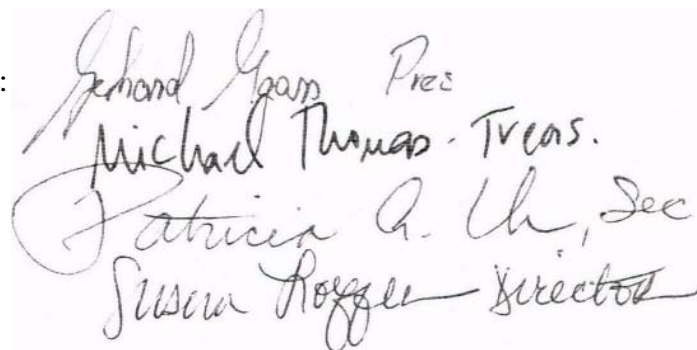 :
Gerhard Pres
Michael Thomas. Treas.
Patricia A. , Sec
Susan Director